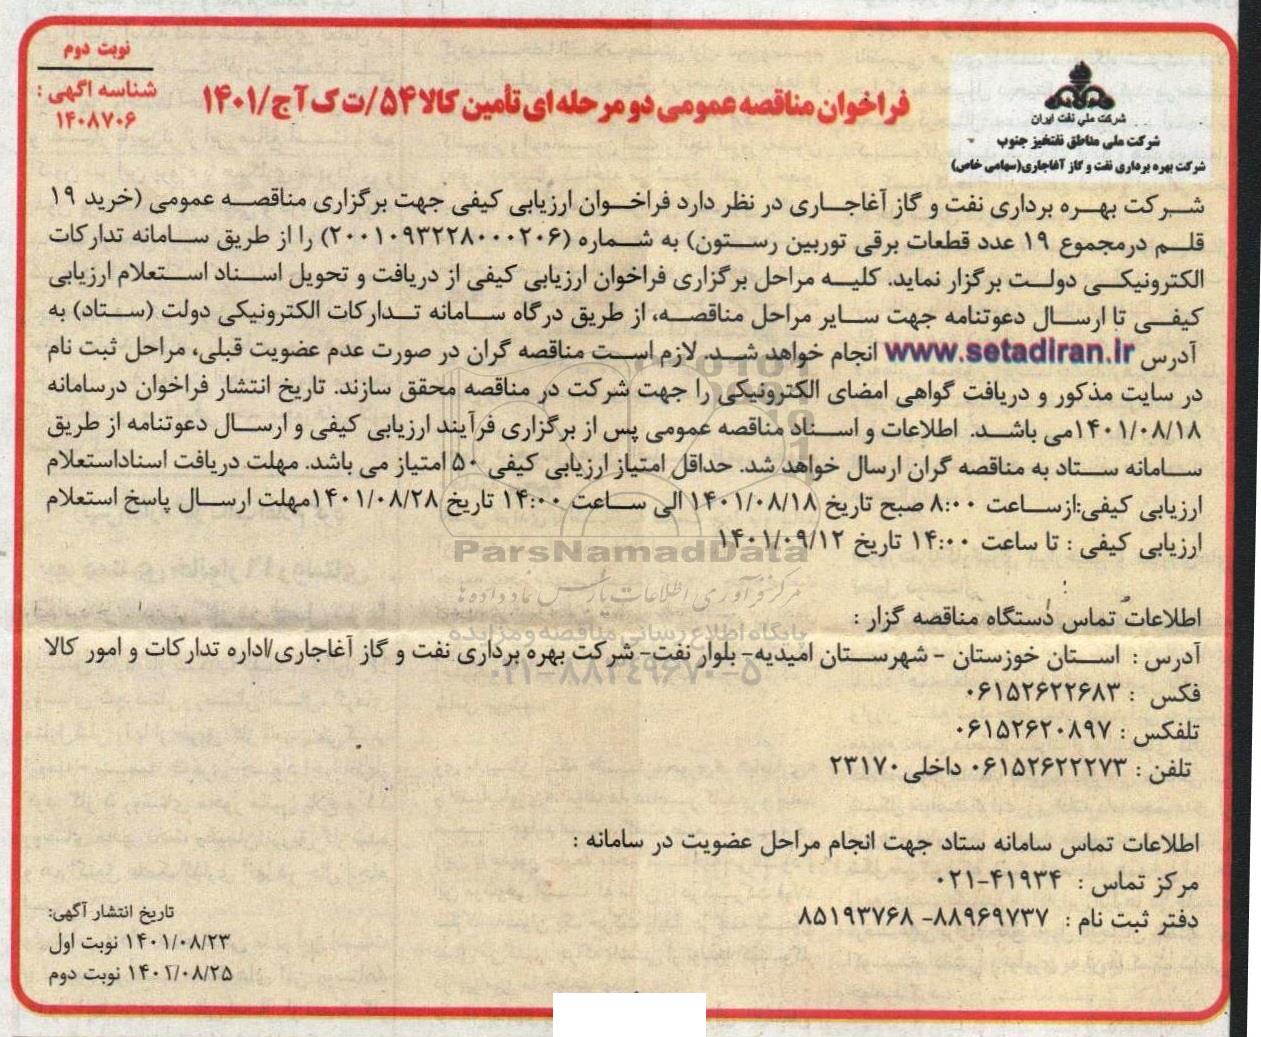 نوبت دوم
شناسه آگهی :
۱۴۰۸۷۰۶
فراخوان مناقصه عمومی دو مرحله ای تأمین کالا ۵۴/ت ک آ ج/۱۴۰۱
شرکت ملی نفت ایران
شرکت ملی مناطق نفتخیز جنوب
شرکت بهره برداری نفت و گاز آغاجاری(سهامی خاص)
شرکت بهره برداری نفت و گاز آغاجاری در نظر دارد فراخوان ارزیابی کیفی جهت برگزاری مناقصه عمومی (خرید ۱۹
قلم درمجموع ۱۹ عدد قطعات برقی توربین رستون) به شماره (۲۰۰۱۰۹۳۲۲۸۰۰۰۲۰۶) را از طریق سامانه تدارکات
الکترونیکی دولت برگزار نماید. کلیه مراحل برگزاری فراخوان ارزیابی کیفی از دریافت و تحویل اسناد استعلام ارزیابی
کیفی تا ارسال دعوتنامه جهت سایر مراحل مناقصه، از طریق درگاه سامانه تدارکات الکترونیکی دولت (ستاد) به
آدرس www.setadiran.ir انجام خواهد شد. لازم است مناقصه گران در صورت عدم عضویت قبلی، مراحل ثبت نام
در سایت مذکور و دریافت گواهی امضای الکترونیکی را جهت شرکت در مناقصه محقق سازند. تاریخ انتشار فراخوان درسامانه
۱۴۰۱/۰۸/۱۸می باشد. اطلاعات و اسناد مناقصه عمومی پس از برگزاری فرآیند ارزیابی کیفی و ارسال دعوتنامه از طریق
سامانه ستاد به مناقصه گران ارسال خواهد شد. حداقل امتیاز ارزیابی کیفی ۵۰ امتیاز می باشد. مهلت دریافت اسناداستعلام
ارزیابی کیفی:ازساعت ۸:۰۰ صبح تاریخ ۱۴۰۱/۰۸/۱۸ الی ساعت ۱۴:۰۰ تاریخ ۱۴۰۱/۰۸/۲۸مهلت ارسال پاسخ استعلام
ارزیابی کیفی : تا ساعت ۱۴:۰۰ تاریخ ۱۴۰۱/۰۹/۱۲
ParsNamadData
مرکز فرآوری اطلاعات پارس نماد داده ها
پایگاه اطلاع رسانی مناقصه و مزایده
۰۲۱-۸۸۳۴۹۶۷۰-۵
اطلاعات تماس دستگاه مناقصه گزار :
آدرس : استان خوزستان - شهرستان امیدیه- بلوار نفت- شرکت بهره برداری نفت و گاز آغاجاری/اداره تدارکات و امور کالا
فکس : ۰۶۱۵۲۶۲۲۶۸۳
تلفکس : ۰۶۱۵۲۶۲۰۸۹۷
تلفن : ۰۶۱۵۲۶۲۲۲۷۳ داخلی۲۳۱۷۰
اطلاعات تماس سامانه ستاد جهت انجام مراحل عضویت در سامانه :
مرکز تماس : ۰۲۱-۴۱۹۳۴
دفتر ثبت نام : ۸۸۹۶۹۷۳۷- ۸۵۱۹۳۷۶۸
تاریخ انتشار آگهی:
۱۴۰۱/۰۸/۲۳ نوبت اول
۱۴۰۱/۰۸/۲۵ نوبت دوم